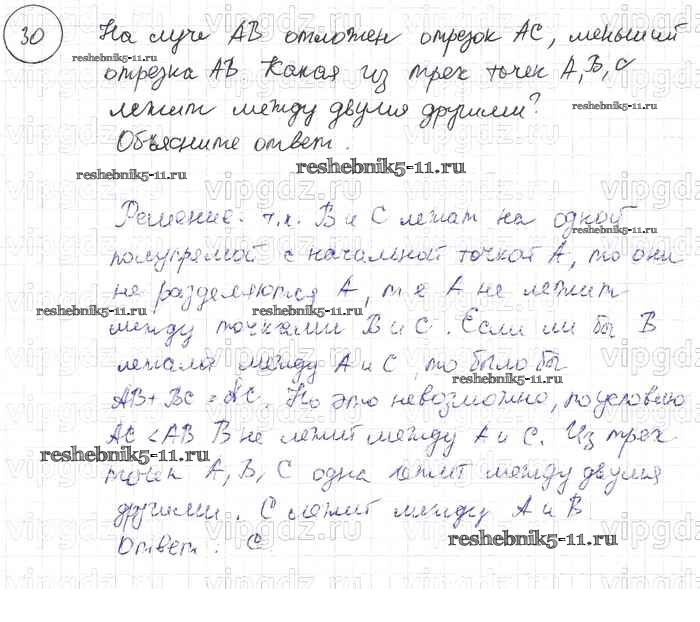 30
На луче АВ отложен отрезок АС, меньший
отрезка АВ. Какая из трех точек А, В, С
лежит между двумя другими?
Объясните ответ.
reshebnik5-11.ru
reshebnik5-11.ru
Решение. т.к. В и С лежат на одной
полупрямой с начальной точкой А, то они
не разделяются А, т.е А не лежит
reshebnik5-11.ru
reshebnik5-11.ru
между точками В и С. Если ли бы В
лежала между А и С, то было бы
reshebnik5-11.ru
АВ + ВС = АС. Но это невозможно, по условию
АС < АВ В не лежит между А и С. Из трех
reshebnik5-11.ru
точек А, В, С одна лежит между двумя
другими. С лежит между А и В
Ответ: С
reshebnik5-11.ru